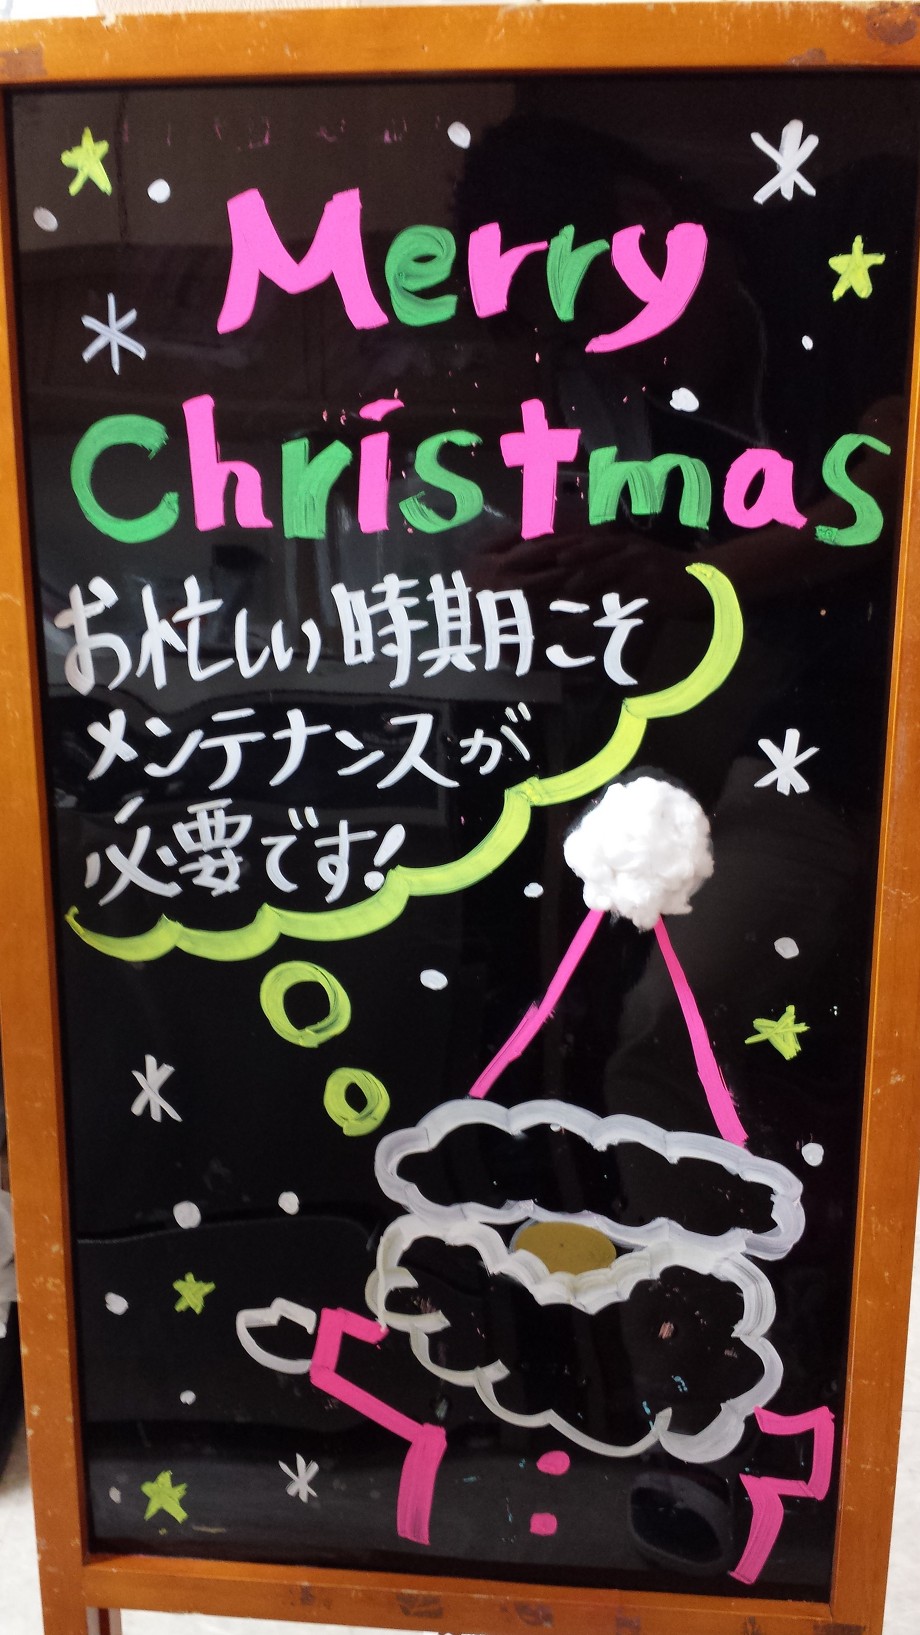 Merry
Christmas
お忙しい時期こそ
メンテナンスが
必要です!